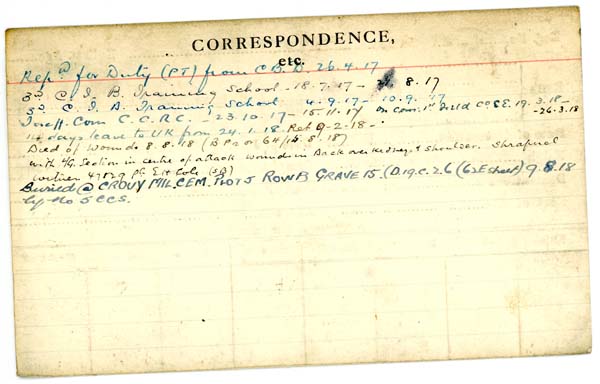 CORRESPONDENCE,
etc.
Rep.d for Duty (PT) from C B D. 26.4.17
3rd C. I. B. Training School - 18.7.17 - 8.17
3rd C. I. B. Training School 4.9.17 - 10.9.17
C. C. R. C. - 23.10.17 - 15.11.17 on Com. 1st Field Co C.E. 19.3.18 - 26.3.18
14 days leave to UK from 24.1.18 Ret 9-2-18 -.
Died of Wounds 8.8.18
with Section in centre of attack wounds in Back over kidney & shoulder. Shrapnel
Buried @ CROUY MIL. CEM. PLOT 5 ROW B GRAVE 15. (D.19.C.2.6 (62E sheet) 9.8.18
by No 5 CCS.